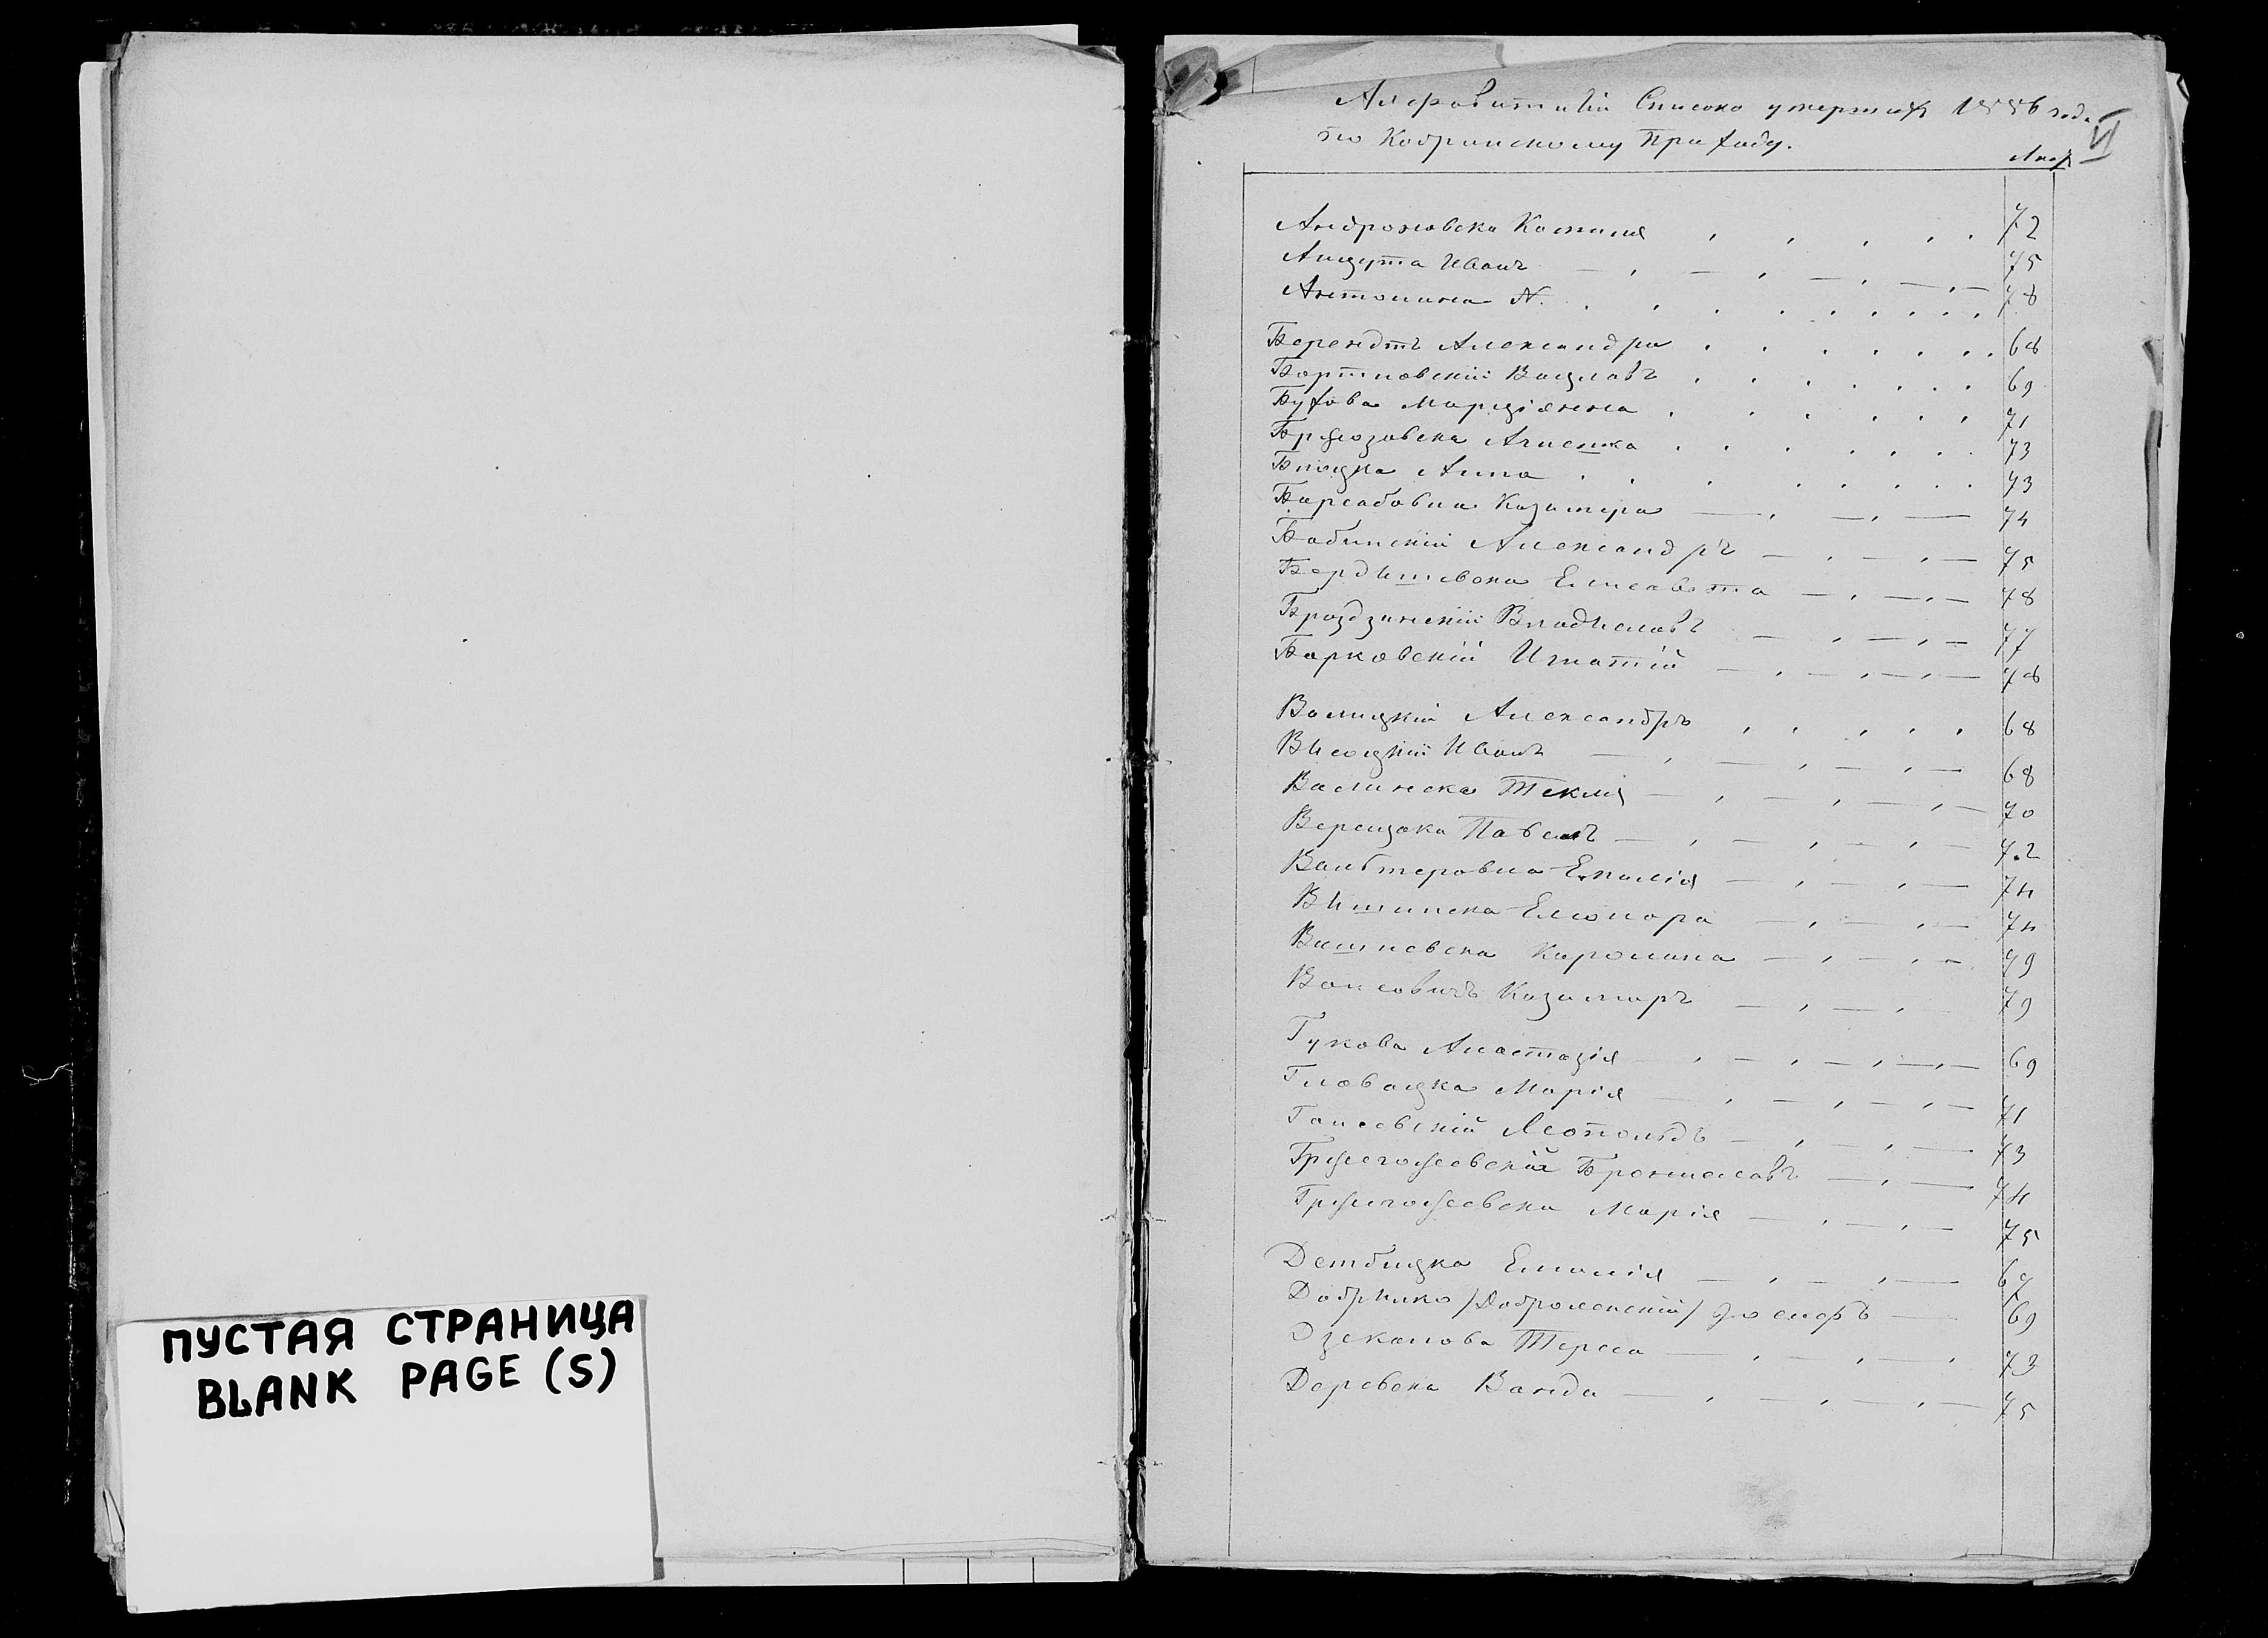 ПУСТАЯ СТРАНИЦА
BLANK PAGE (S)
Алфавитный Списокъ умершихъ 1886 года
по Кобринскому Приходу.
VI
Андроновска Камилія 72
Анцута Иванъ 75
Антонина N. 78
Берендтъ Александра 68
Бортновскій Вацлавъ 69
Бухова Марціянна 71
Бржозовска Агнешка 73
Анна 73
Казимера 74
Бабинскій Александръ 75
Елисавета 78
Броздзинскій Владиславъ 77
Барковскій Игнатій 78
Валицкій Александръ 68
Высоцкій Иванъ 68
Валинска Текля 70
Верещака Павелъ 72
Вальтеровна Емилія 74
Вышинска Елеонора 74
Вишневска Каролина 79
Вансовичъ Казимиръ 79
Гукова Анастазія 69
Гловацка Марія 71
Гансевскій Леопольдъ 73
Гржегоржевскій Брониславъ 74
Гржегоржевска Марія 75
Дембицка Емилія 67
Добрынко /Доброленскій/ Іосифъ 69
Дзеканова Тереса 73
Ванда 75